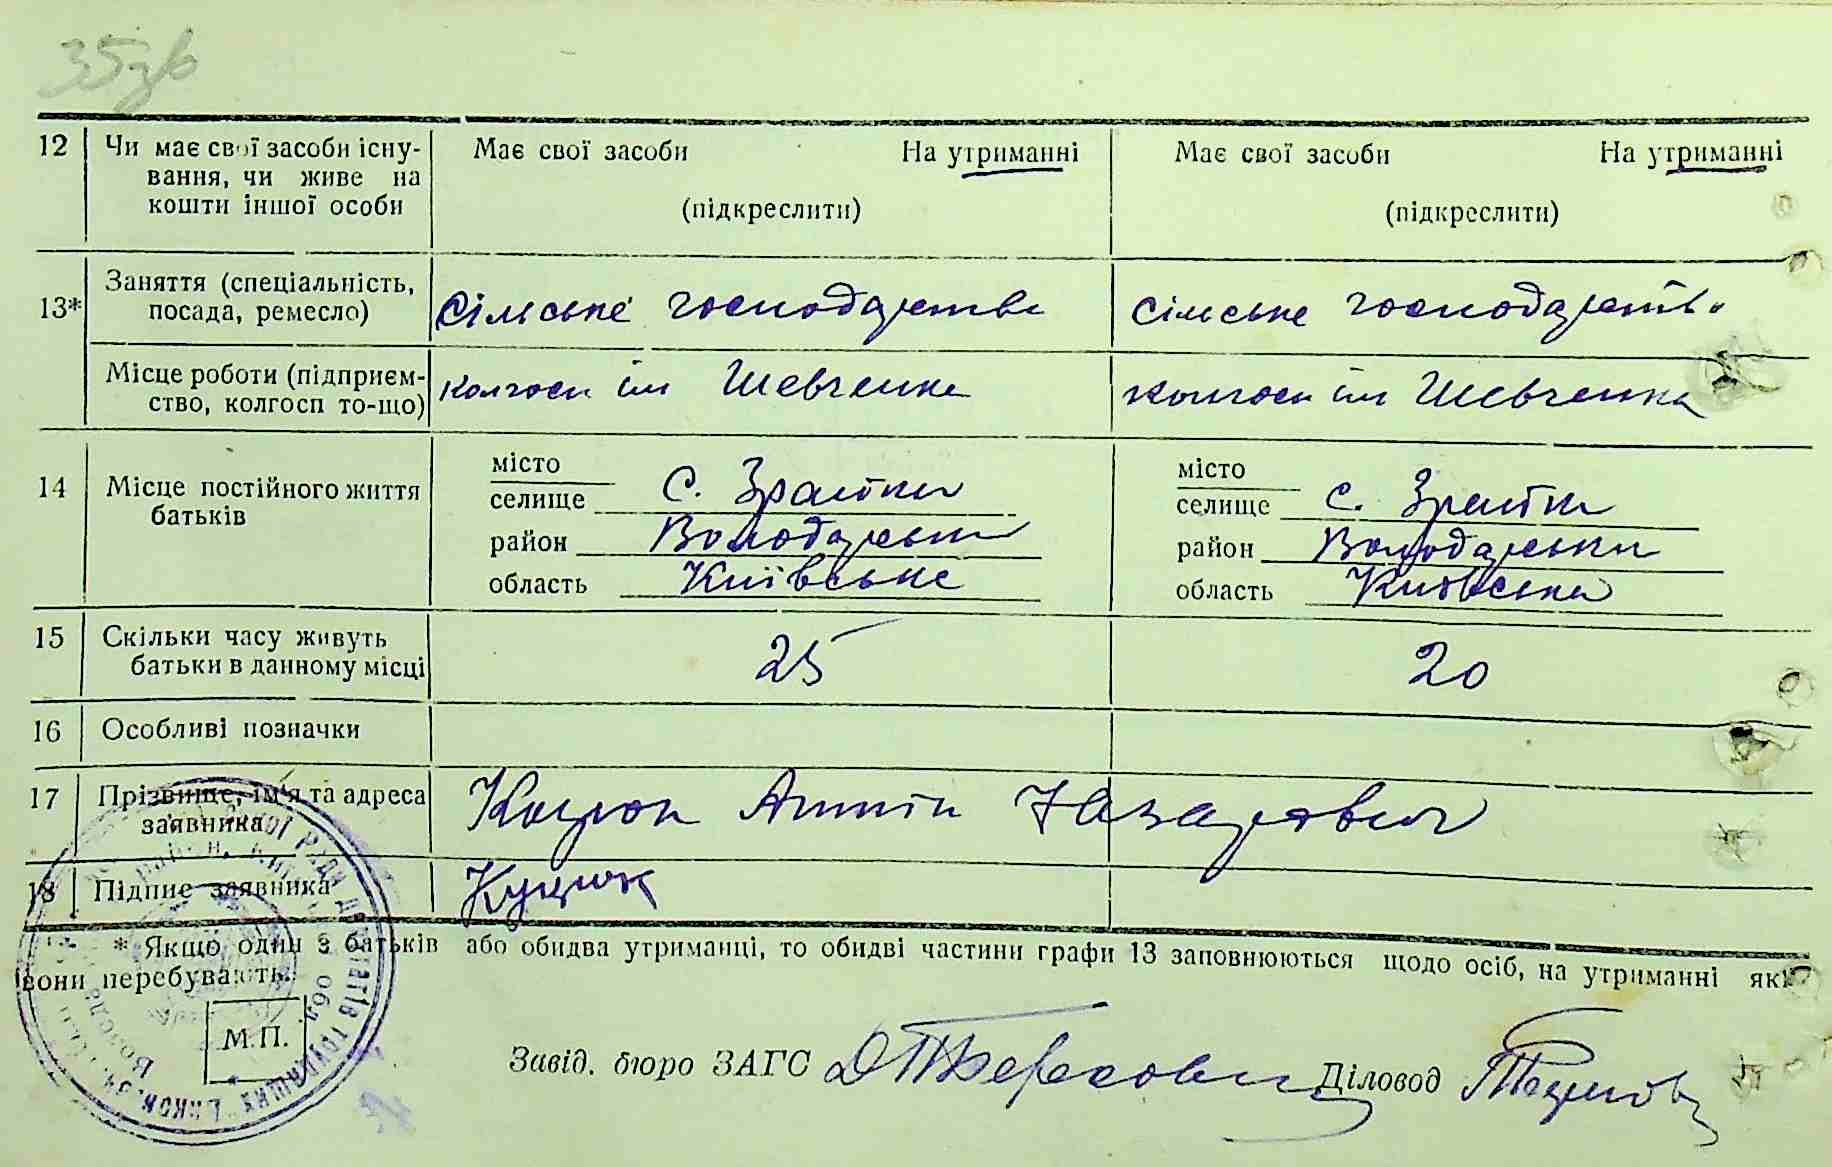 35зв
12 Чи має свої засоби існування, чи живе на кошти іншої особи
Має свої засоби На утриманні
(підкреслити)
Має свої засоби На утриманні
(підкреслити)
13* Заняття (спеціальність, посада, ремесло)
Сільське господарство
сільське господарство
Місце роботи (підприємство, колгосп то-що)
колгосп ім Шевченка
колгосп ім Шевченка
14 Місце постійного життя батьків
місто
селище с. Зрайки
район Володарськи
область Київське
місто
селище с. Зрайки
район Володарськи
область Київська
15 Скільки часу живуть батьки в данному місці
25
20
16 Особливі позначки
17 Прізвище, ім'я та адреса заявника
Антін Назарович
18 Підпис заявника
Куцюк
* Якщо один з батьків або обидва утриманці, то обидві частини графи 13 заповнюються щодо осіб, на утриманні яких
вони перебувають.
М.П.
Завід. бюро ЗАГС
Діловод
депутатів трудящих